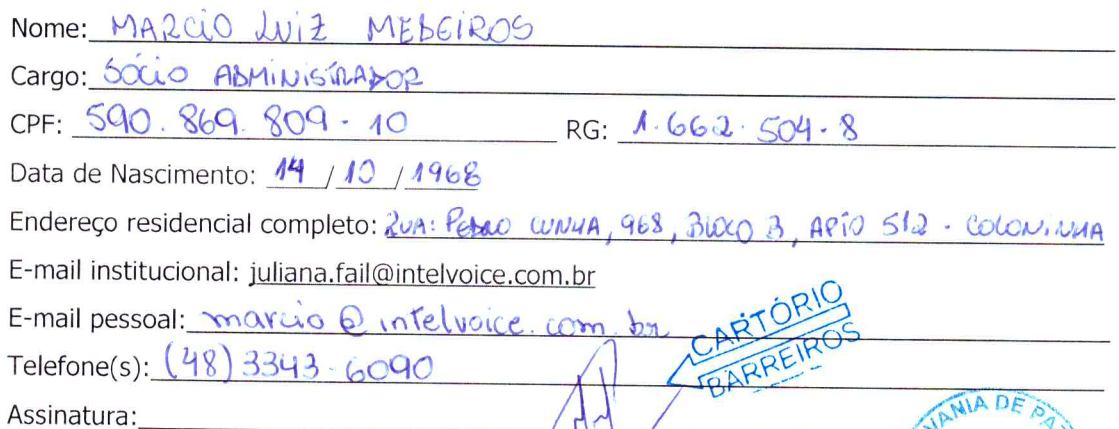 Nome: MARCIO LUIZ MEDEIROS
Cargo: SÓCIO ADMINISTRADOR
CPF: 590.869.809-10 RG: 1.662.504-8
Data de Nascimento: 14 / 10 / 1968
Endereço residencial completo: RUA: PEDRO CUNHA, 968, BLOCO B, APTO 512 - COLONINHA
E-mail institucional: juliana.fail@intelvoice.com.br
E-mail pessoal: marcio@intelvoice.com.br
CARTÓRIO
BARREIROS
Telefone(s): (48) 3343-6090
Assinatura:
DE